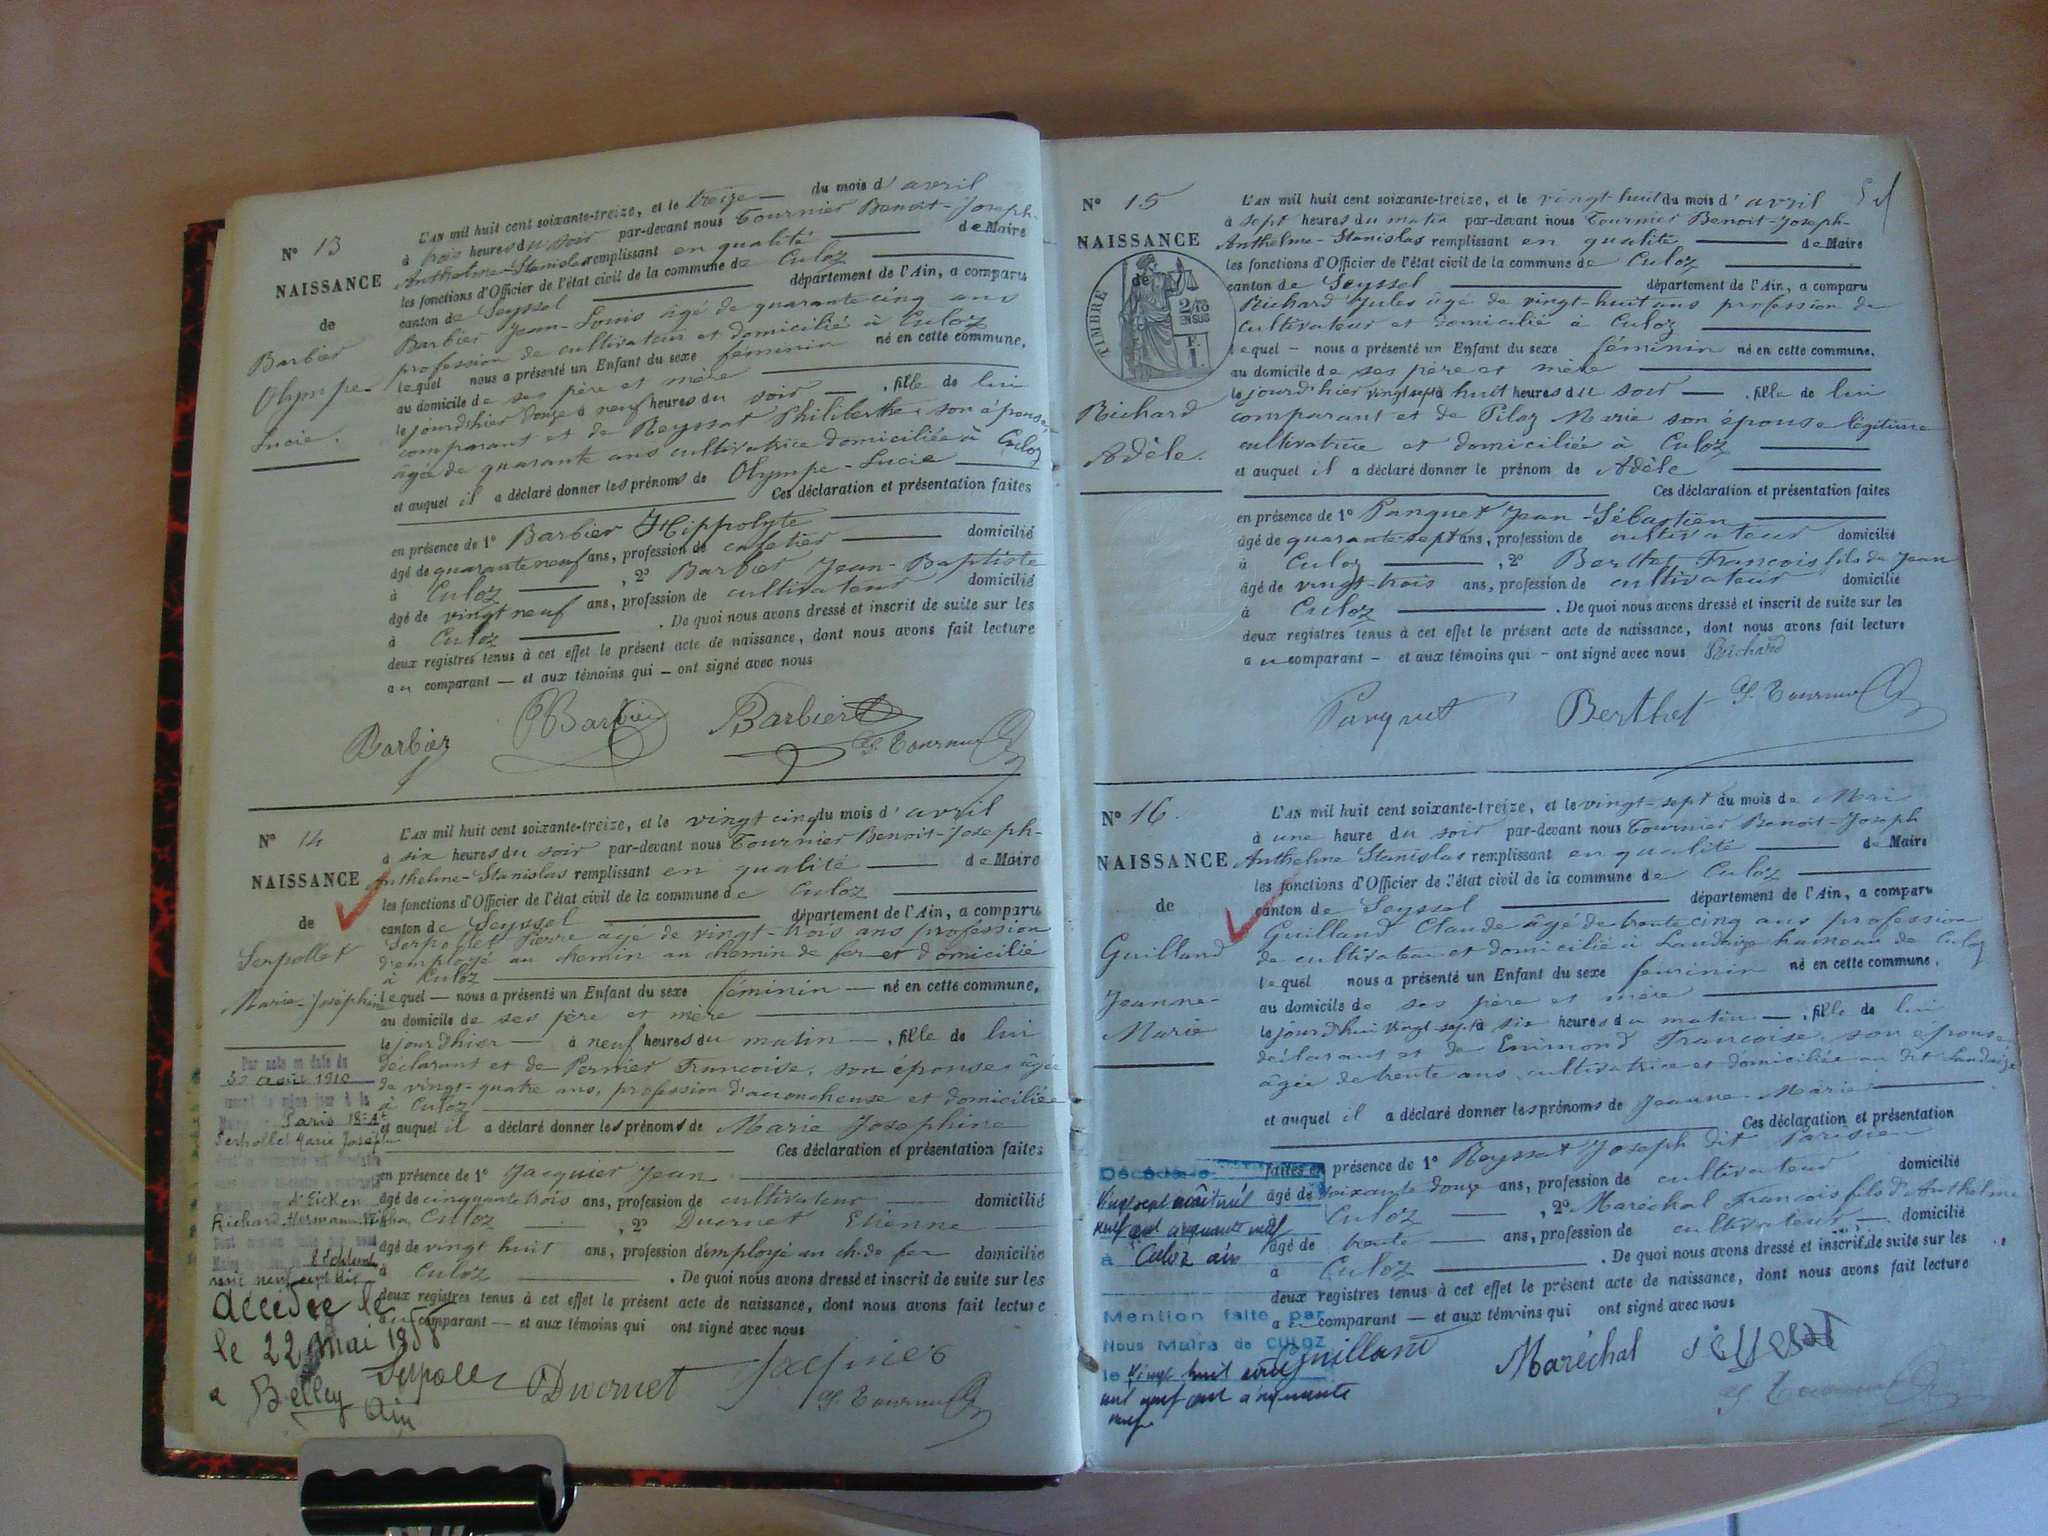 N° 13
NAISSANCE
de
Barbier
Olympe-
Lucie.
L'AN mil huit cent soixante-treize, et le treize du mois d'avril
à trois heures du soir par-devant nous Tournier Benoit-Joseph-
Anthelme-Stanislas remplissant en qualité de Maire
les fonctions d'Officier de l'état civil de la commune de Culoz
canton de Seyssel département de l'Ain, a comparu
Barbier Jean-Louis âgé de quarante cinq ans
profession de cultivateur et domicilié à Culoz
lequel nous a présenté un Enfant du sexe féminin né en cette commune,
au domicile de ses père et mère
le jourd'hier douze à neuf heures du soir , fille de lui
comparant et de Reyssat Philiberthe, son épouse,
âgée de quarante ans cultivatrice domiciliée à Culoz
et auquel il a déclaré donner les prénoms de Olympe-Lucie
Ces déclaration et présentation faites
en présence de 1° Barbier Hippolyte
âgé de quarante neuf ans, profession de cafetier domicilié
à Culoz , 2° Barbier Jean-Baptiste
âgé de vingt neuf ans, profession de cultivateur domicilié
à Culoz . De quoi nous avons dressé et inscrit de suite sur les
deux registres tenus à cet effet le présent acte de naissance, dont nous avons fait lecture
au comparant — et aux témoins qui — ont signé avec nous
Barbier Barbier Barbier
St. Tournier
N° 14
NAISSANCE
de
Serpollet
Marie-Joséphine
L'AN mil huit cent soixante-treize, et le vingt cinq du mois d'avril
à six heures du soir par-devant nous Tournier Benoit-Joseph-
Anthelme-Stanislas remplissant en qualité de Maire
les fonctions d'Officier de l'état civil de la commune de Culoz
canton de Seyssel département de l'Ain, a comparu
Serpollet Pierre âgé de vingt-trois ans profession
d'employé au chemin au chemin de fer et domicilié
à Culoz
lequel — nous a présenté un Enfant du sexe féminin — né en cette commune,
au domicile de ses père et mère
le jourd'hier — à neuf heures du matin — , fille de lui
déclarant et de Permier Françoise, son épouse âgée
de vingt-quatre ans, profession d'accoucheuse et domiciliée
à Culoz
et auquel il a déclaré donner les prénoms de Marie Joséphine
Ces déclaration et présentation faites
en présence de 1° Jacquier Jean
âgé de cinquante trois ans, profession de cultivateur domicilié
à Culoz , 2° Ducruet Etienne
âgé de vingt huit ans, profession d'employé au ch. de fer domicilié
à Culoz . De quoi nous avons dressé et inscrit de suite sur les
deux registres tenus à cet effet le présent acte de naissance, dont nous avons fait lecture
au comparant — et aux témoins qui ont signé avec nous
Par acte en date du
août 1910
Paris 18e
Serpollet Marie Joséph
d'Eicken
Richard Hermann
mil neuf cent dix
décédée le
le 22 Mai 1958
a Belley
Ain
Serpollet Ducruet Jacquier
St. Tournier
N° 15
NAISSANCE
de
TIMBRE
2/10
EN SUS
Richard
Adèle.
L'AN mil huit cent soixante-treize, et le vingt-huit du mois d'avril
à sept heures du matin par-devant nous Tournier Benoit-Joseph-
Anthelme-Stanislas remplissant en qualité de Maire
les fonctions d'Officier de l'état civil de la commune de Culoz
canton de Seyssel département de l'Ain, a comparu
Richard Jules âgé de vingt-huit ans profession de
cultivateur et domicilié à Culoz
lequel — nous a présenté un Enfant du sexe féminin né en cette commune,
au domicile de ses père et mère
le jourd'hier vingt sept à huit heures du soir — , fille de lui
comparant et de Piloz Marie son épouse légitime
cultivatrice et domiciliée à Culoz
et auquel il a déclaré donner le prénom de Adèle
Ces déclaration et présentation faites
en présence de 1° Panguet Jean-Sébastien
âgé de quarante-sept ans, profession de cultivateur domicilié
à Culoz , 2° Berthet François fils de Jean
âgé de vingt-trois ans, profession de cultivateur domicilié
à Culoz . De quoi nous avons dressé et inscrit de suite sur les
deux registres tenus à cet effet le présent acte de naissance, dont nous avons fait lecture
au comparant — et aux témoins qui — ont signé avec nous Richard
Panguet Berthet St. Tournier
N° 16.
NAISSANCE
de
Guilland
Jeanne-
Marie
L'AN mil huit cent soixante-treize, et le vingt-sept du mois de Mai
à une heure du soir par-devant nous Tournier Benoit-Joseph
Anthelme Stanislas remplissant en qualité de Maire
les fonctions d'Officier de l'état civil de la commune de Culoz
canton de Seyssel département de l'Ain, a comparu
Guilland Claude âgé de trente cinq ans profession
de cultivateur et domicilié à Landaize hameau de Culoz
lequel nous a présenté un Enfant du sexe féminin né en cette commune,
au domicile de ses père et mère
le jourd'hui vingt-sept à six heures du matin — , fille de lui
déclarant et de Enimond Françoise, son épouse,
âgée de trente ans, cultivatrice et domiciliée au dit Landaize
et auquel il a déclaré donner les prénoms de Jeanne-Marie
Ces déclaration et présentation
faites en présence de 1° Reyssat Joseph dit Parisien
âgé de soixante douze ans, profession de cultivateur domicilié
à Culoz , 2° Maréchal François fils d'Anthelme
âgé de trente ans, profession de cultivateur domicilié
à Culoz . De quoi nous avons dressé et inscrit de suite sur les
deux registres tenus à cet effet le présent acte de naissance, dont nous avons fait lecture
au comparant — et aux témoins qui ont signé avec nous
Décédée
Vingt sept août mil
neuf cent cinquante neuf
à Culoz ain
Mention faite par
Nous Maire de CULOZ
le Vingt huit août
mil neuf cent cinquante
neuf
Guilland Maréchal
St. Tournier